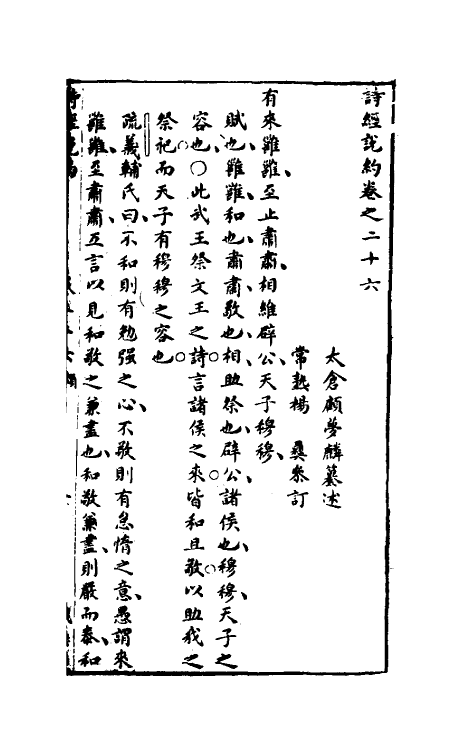 詩經說約卷之二十六
太倉顧夢麟纂述
常熟楊彝參訂
有來雝雝至止肅肅相維辟公天子穆穆
賦也雝雝和也肅肅敬也相助祭也辟公諸侯也穆穆天子之
容也○此武王祭文王之詩言諸侯之來皆和且敬以助我之
祭祀而天子有穆穆之容也
疏義輔氏曰不和則有勉强之心不敬則有怠惰之意愚謂來
雝雝至肅肅互言以見和敬之兼盡也和敬兼盡則嚴而泰和